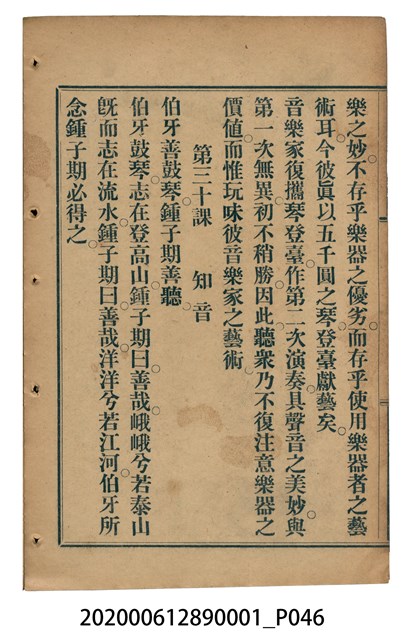 樂之妙。不存乎樂器之優劣。而存乎使用樂器者之藝
術耳。今彼眞以五千圓之琴登臺獻藝矣。
音樂家復攜琴登臺。作第二次演奏。具聲音之美妙。與
第一次無異。初不稍勝。因此聽衆乃不復注意樂器之
價値。而惟玩味彼音樂家之藝術。
第三十課　知音
伯牙善鼓琴。鍾子期善聽。
伯牙鼓琴。志在登高山。鍾子期曰。善哉。峨峨兮若泰山。
旣而志在流水。鍾子期曰。善哉。洋洋兮若江河。伯牙所
念。鍾子期必得之。
202000612890001_P046